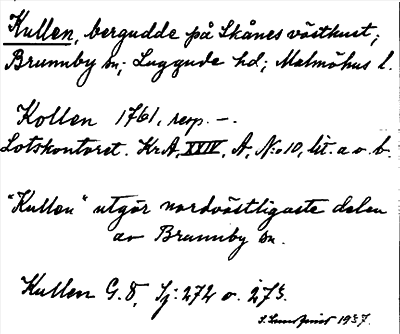 Kullen, bergudde på Skånes västkust;
Brunnby sn; Luggude hd; Malmöhus l.
Kollen 1761, resp. –.
Lotskontoret. KrA, XXIV, A, N:o 10, lit. a o. b.
"Kullen" utgör nordvästligaste delen
av Brunnby sn.
Kullen G.8, Sj: 272 o. 273.
S. 1937.